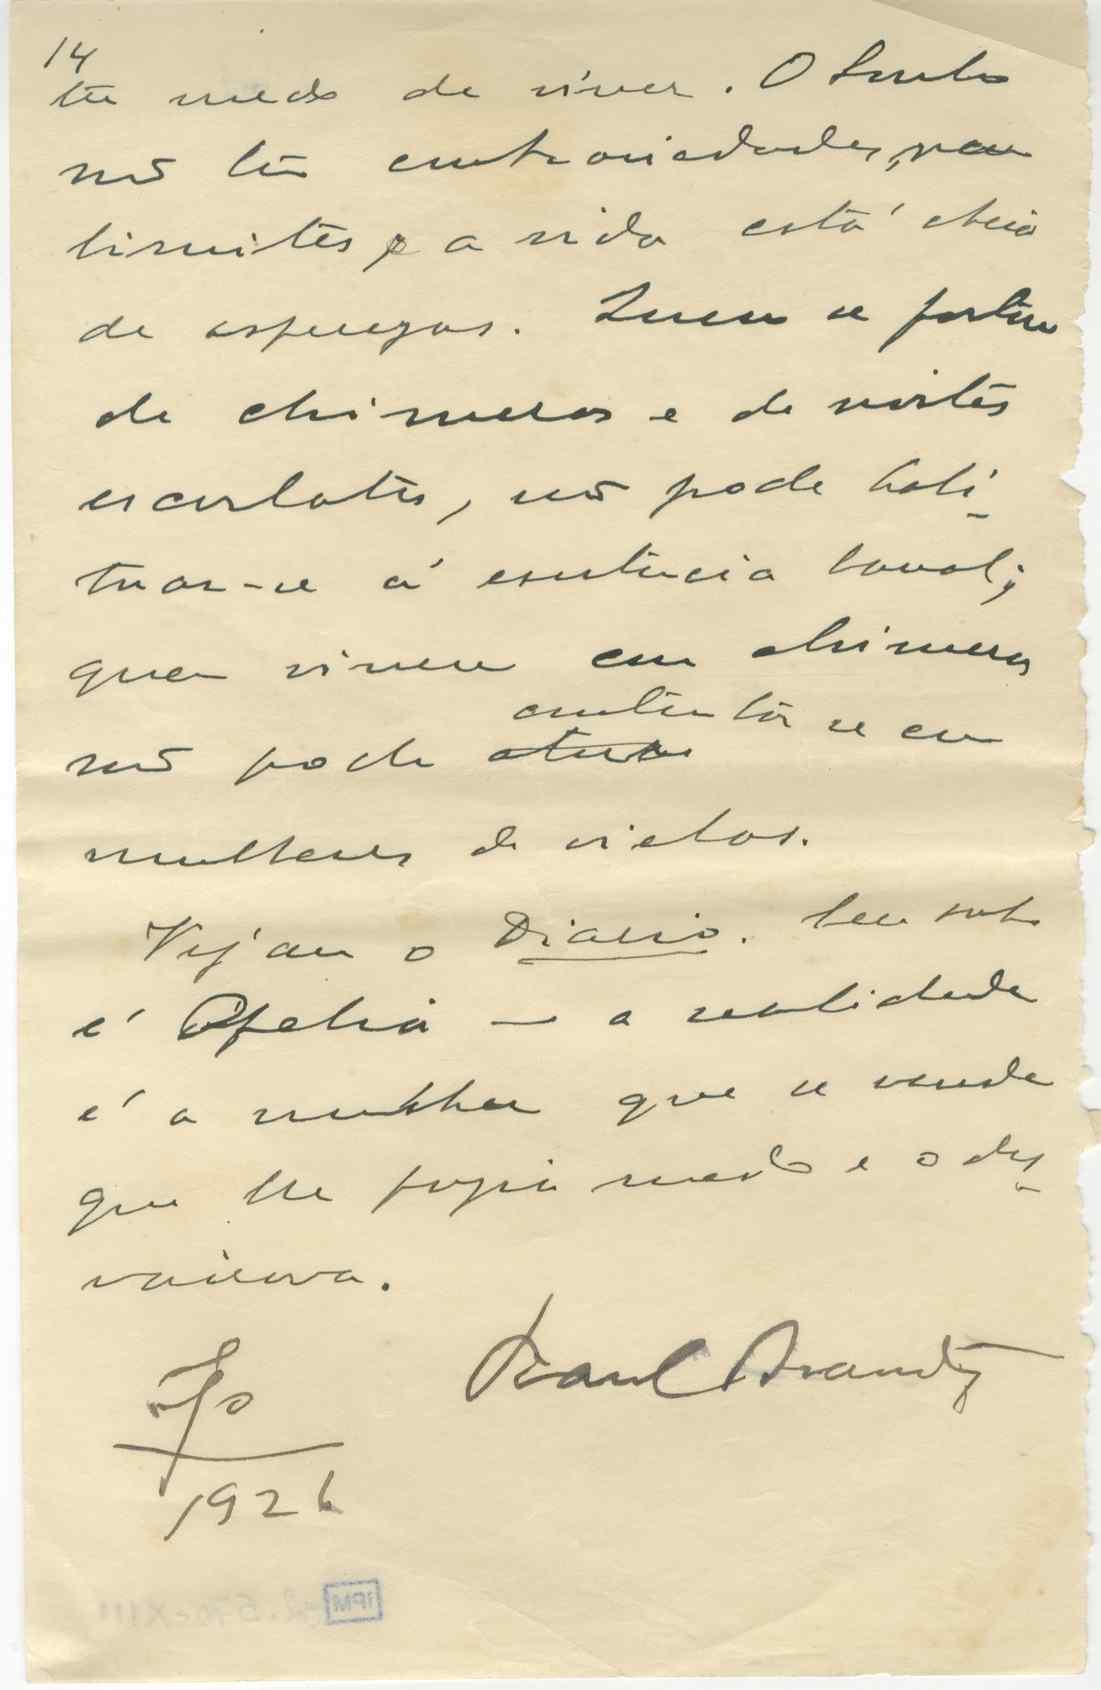 14
tem medo de viver. O sonho
não tem contrariedades, nem
limites, e a vida está cheia
de asperezas. Quem se
de chimeras e de noites
escarlates, não pode habi-
tuar-se á existencia banal;
quem viveu em chimeras
não pode contentar se com
mulheres de vielas.
Vejam o Diario. Seu sonho
é Ofelia — a realidade
é a mulher que se vende
que lhe fazia medo e o des-
vairava.
Raul Brandão
1926
IPM